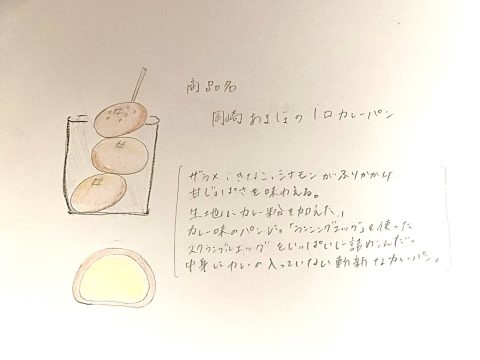 商品名
岡崎あまじょの1口カレーパン
ザラメ、きなこ、シナモンがふりかかり
甘じょぱさを味わえる。
生地にカレー粉を加えた、
カレー味のパンに。「ランニングエッグ」を使った
スクランブルエッグをいっぱいに詰めこんだ~
中身にカレーの入っていない斬新なカレーパン。